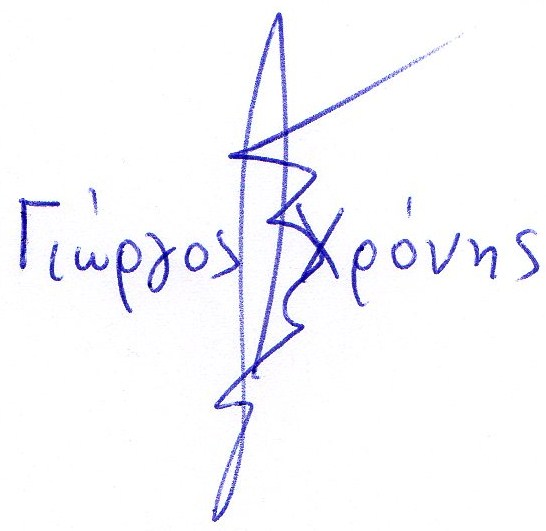 Γιώργος Χρόνης